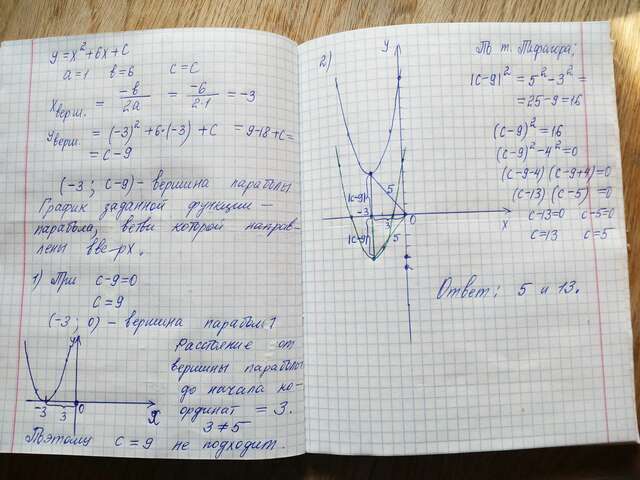 y = x² + 6x + c
a=1 b=6 c=c
xверш. = -b/2a = -6/2·1 = -3
yверш. = (-3)² + 6·(-3) + c = 9-18+c=
= c-9
(-3; c-9) - вершина параболы
График заданной функции -
парабола, ветви которой направ-
лены вверх.
1) При c-9=0
c=9
(-3; 0) - вершина параболы
y
-3 3 0 x
Расстояние от
вершины параболы
до начала ко-
ординат = 3.
3≠5
Поэтому c=9 не подходит.
2)
y
|c-9| 5
-3 3 0
x
|c-9| 5
По т. Пифагора:
|c-9|² = 5² - 3² =
= 25-9=16
(c-9)² = 16
(c-9)² - 4² = 0
(c-9-4)(c-9+4)=0
(c-13)(c-5)=0
c-13=0 c-5=0
c=13 c=5
Ответ: 5 и 13.